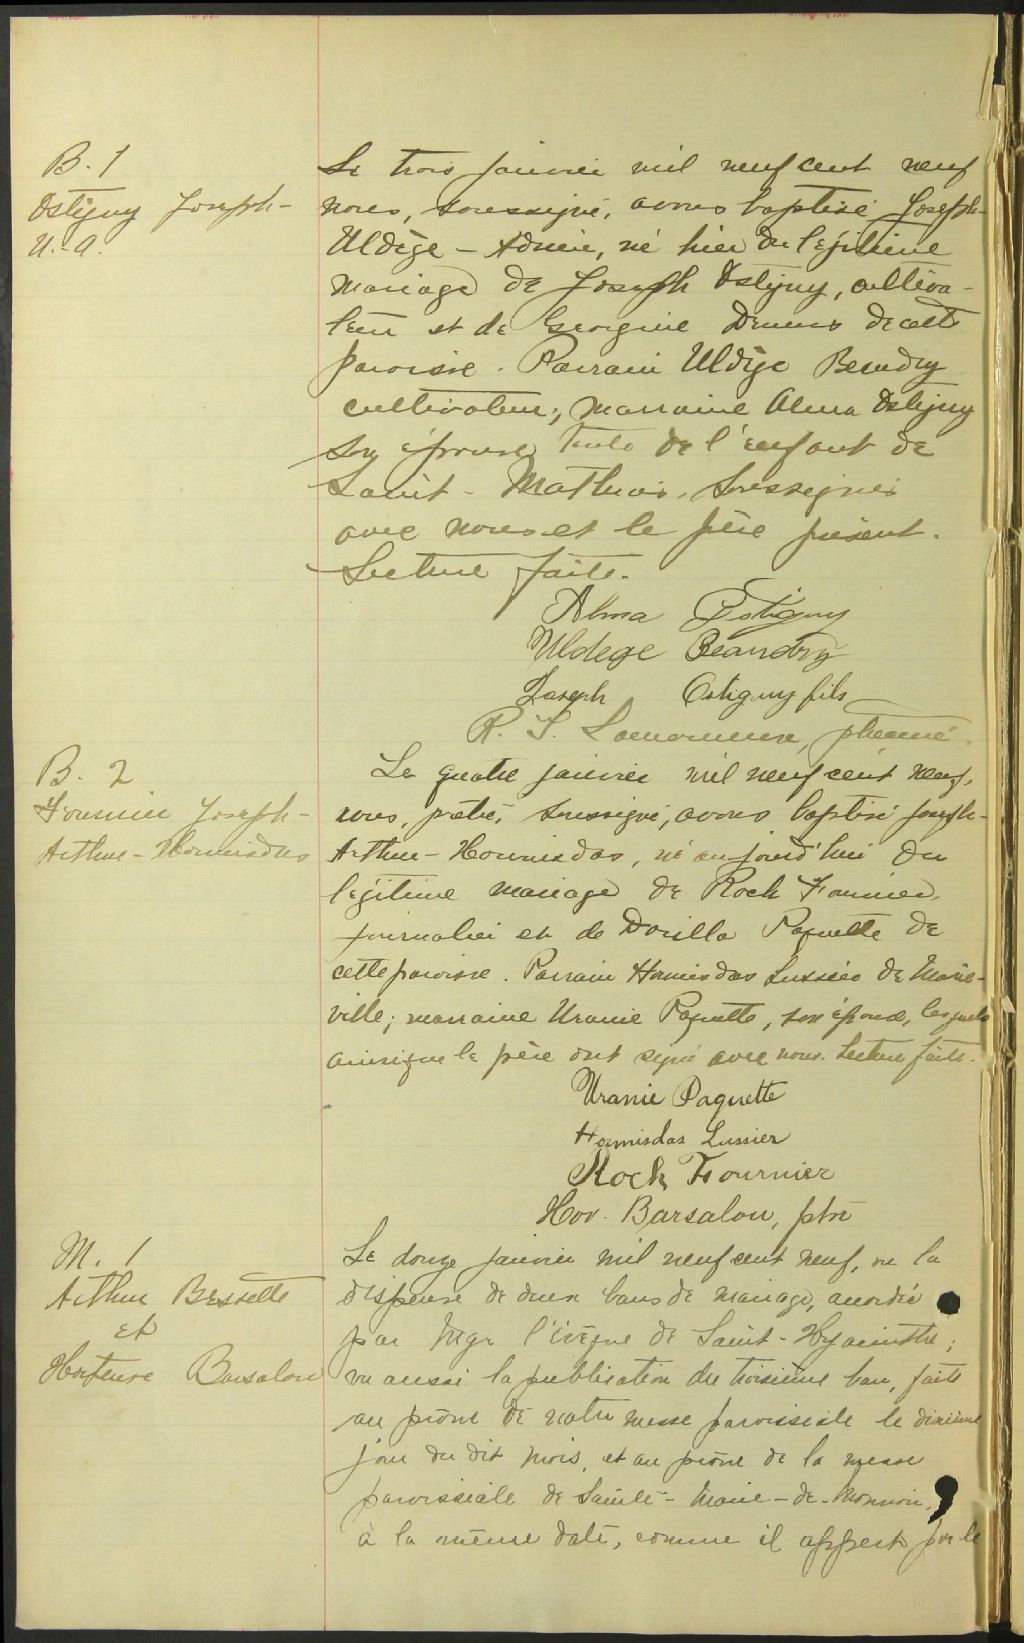 B. 1
Ostigny Joseph-
U.-A.
Le trois janvier mil neuf cent neuf
nous, soussigné, avons baptisé Joseph-
Uldège - Adrien, né hier du légitime
mariage de Joseph Ostigny, cultiva-
teur et de Georgine Demers de cette
paroisse. Parrain Uldège Beaudry
cultivateur; marraine Alma Ostigny
son épouse, tante de l'enfant de
Saint-Mathias, soussignés
avec nous et le père présent.
Lecture faite.
Alma Ostigny
Uldege Beaudry
Joseph Ostigny fils
R. S.
B. 2
Fournier Joseph-
Arthur-Hormisdas
Le quatre janvier mil neuf cent neuf,
nous, prêtre, soussigné, avons baptisé Joseph-
Arthur-Hormisdas, né aujourd'hui du
légitime mariage de Rock Fournier,
journalier et de Dorilla Paquette de
cette paroisse. Parrain Hormisdas Lussier de Marie-
ville; marraine Uranie Paquette, son épouse, lesquels
ainsi que le père ont signé avec nous. Lecture faite.
Uranie Paquette
Hormisdas Lussier
Rock Fournier
Hov. Barsalou, ptre
M. 1
Arthur Bessette
et
Hortense Barsalou
Le douze janvier mil neuf cent neuf, vu la
dispense de deux bans de mariage, accordée
par Mgr l'évêque de Saint-Hyacinthe;
vu aussi la publication du troisième ban, faite
au prône de notre messe paroissiale le dixième
jour du dit mois, et au prône de la messe
paroissiale de Sainte-Marie-de-Monnoir,
à la même date, comme il appert par le